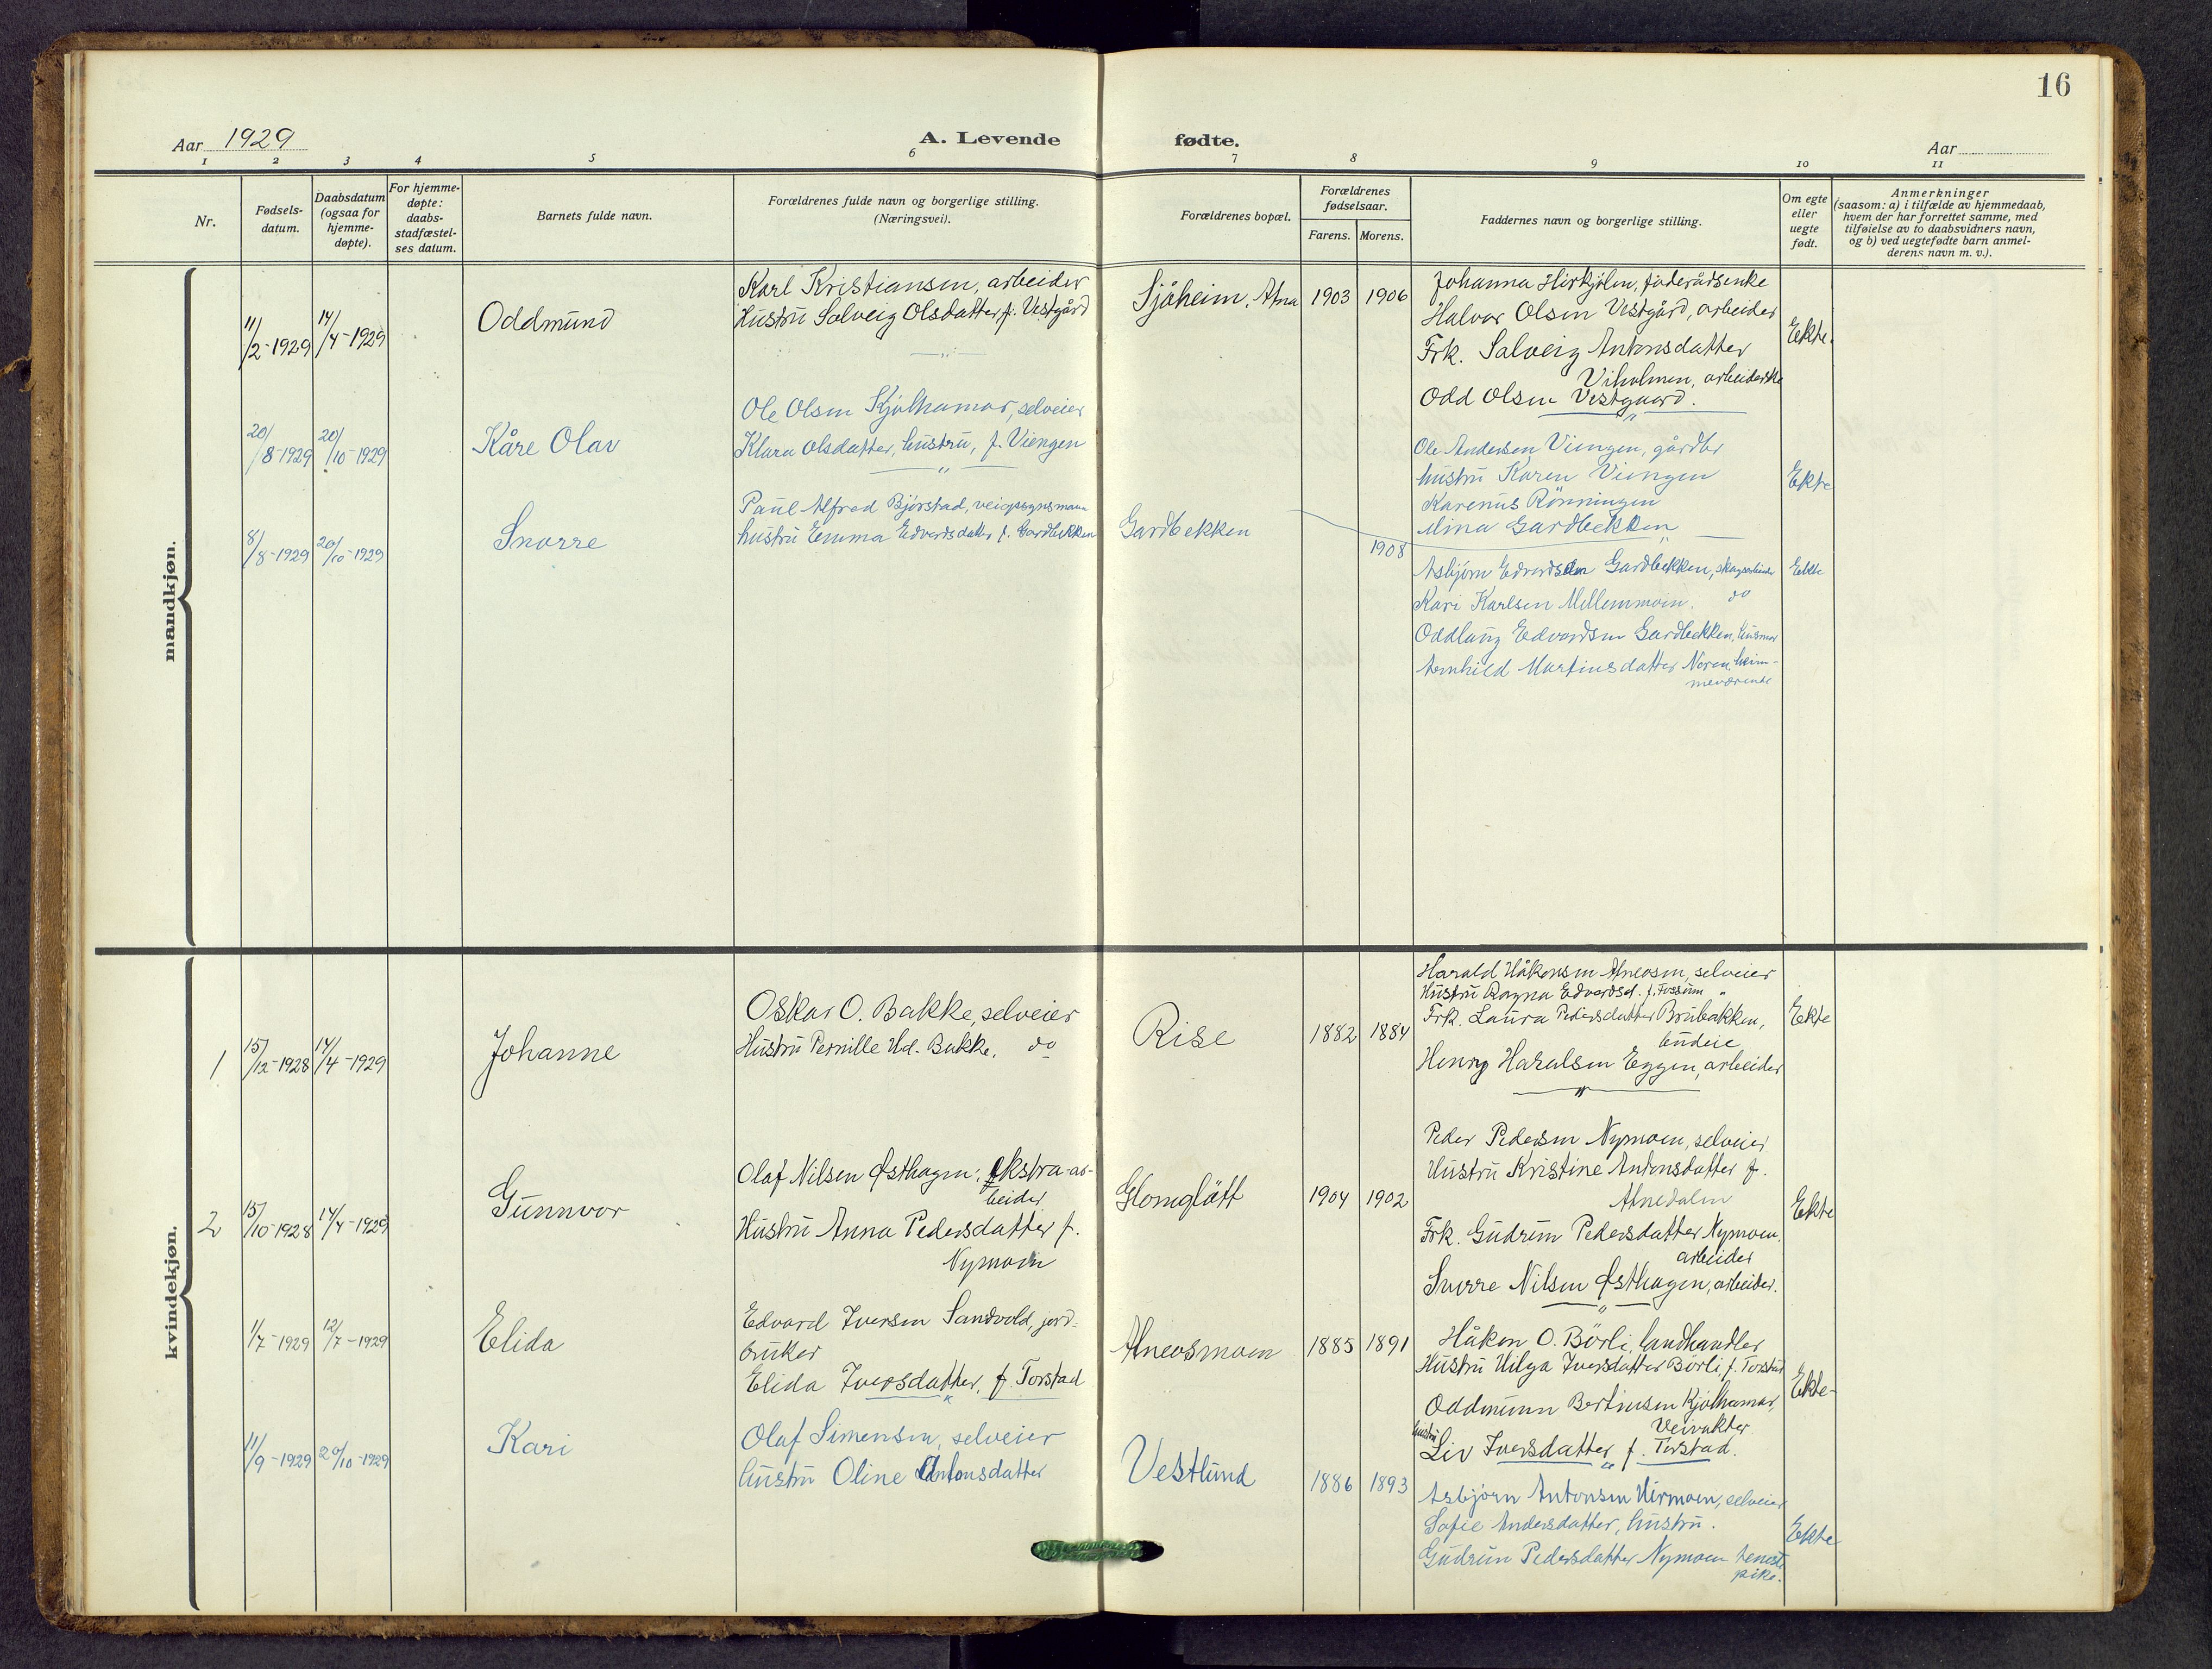 16
Aar 1929
A. Levende fødte.
Aar
1 2 3 4 5 6 7 8 9 10 11
Nr.
Fødsels-
datum.
Daabsdatum
(ogsaa for
hjemme-
døpte).
For hjemme-
døpte:
daabs-
stadfæstel-
ses datum.
Barnets fulde navn.
Forældrenes fulde navn og borgerlige stilling.
(Næringsvei).
Forældrenes bopæl.
Forældrenes
fødselsaar.
Farens. Morens.
Faddernes navn og borgerlige stilling.
Om egte
eller
uegte
født.
Anmerkninger
(saasom: a) i tilfælde av hjemmedaab,
hvem der har forrettet samme, med
tilføielse av to daabsvidners navn,
og b) ved uegtefødte barn anmel-
derens navn m. v.).
mandkjøn.
11/2-1929 14/4-1929
Oddmund
Karl Kristiansen, arbeider
Hustru Solveig Olsdatter, f. Vestgård
Sjöheim, Atna
1903 1906
Johanna Hirkjölen, föderådsenke
Halvor Olsen Vestgård, arbeider
Frk. Solveig Antonsdatter
Viholmen, arbeiderske
Odd Olsen Vestgaard.
Ekte.
20/8-1929 20/10-1929
Kåre Olav
Ole Olsen Kjölhamar, selveier
Klara Olsdatter, hustru, f. Viengen
Ole Andersen Viengen, gårdbr
hustru Karen Viengen
Karenus Rönningen
Mina Gardbekken
Ekte
8/8-1929 20/10-1929
Snorre
Paul Alfred Bjørstad, veiopsynsmann
hustru Emma Edvardsdatter f. Gardbekken
Gardbekken
1908
Asbjörn Edvardsen Gardbekken, skogsarbeider
Kari Karlsen Mellemmoen. do
Oddlaug Edvardsen Gardbekken, husmor
Arnhild Martinsdatter Noren, heim-
meværende
Ekte
kvindekjøn.
1 15/12-1928 14/4-1929
Johanne
Oskar O. Bakke, selveier
Hustru Pernille Hd. Bakke, do
Rise
1882 1884
Harald Håkensen Atneosen, selveier
Hustru Ragna Edvardsd. f. Fossum "
Frk. Laura Pedersdatter Brubakken,
budeie
Henry Haralsen Eggen, arbeider
Ekte
2 15/10-1928 14/4-1929
Gunnvor
Olaf Nilsen Østhagen, ekstra-ar-
beider
Hustru Anna Pedersdatter f.
Nymoen
Glomgløtt
1904 1902
Peder Pedersen Nymoen, selveier
Hustru Kristine Antonsdatter f.
Atnedalen
Frk. Gudrun Pedersdatter Nymoen,
arbeider
Snorre Nilsen Østhagen, arbeider.
Ekte
1/7-1929 12/7-1929
Elida
Edvard Iversen Sandvold, jord-
bruker
Elida Iversdatter, f. Torstad
Atneosmoen
1885 1891
Håken O. Börli, landhandler
Hustru Helga Iversdatter Börli, f. Torstad
Oddmunn Bertinsen Kjölhamar,
Veivokter
hustru
Liv Iversdatter f. Torstad.
Ekte-
11/9-1929 20/10-1929
Kari
Olaf Simensen, selveier
hustru Oline Antonsdatter
Vestlund
1886 1893
Asbjörn Antonsen Hirmoen, selveier
Sofie Andersdatter, hustru.
Gudrun Pedersdatter Nymoen teneste
pike.
Ekte